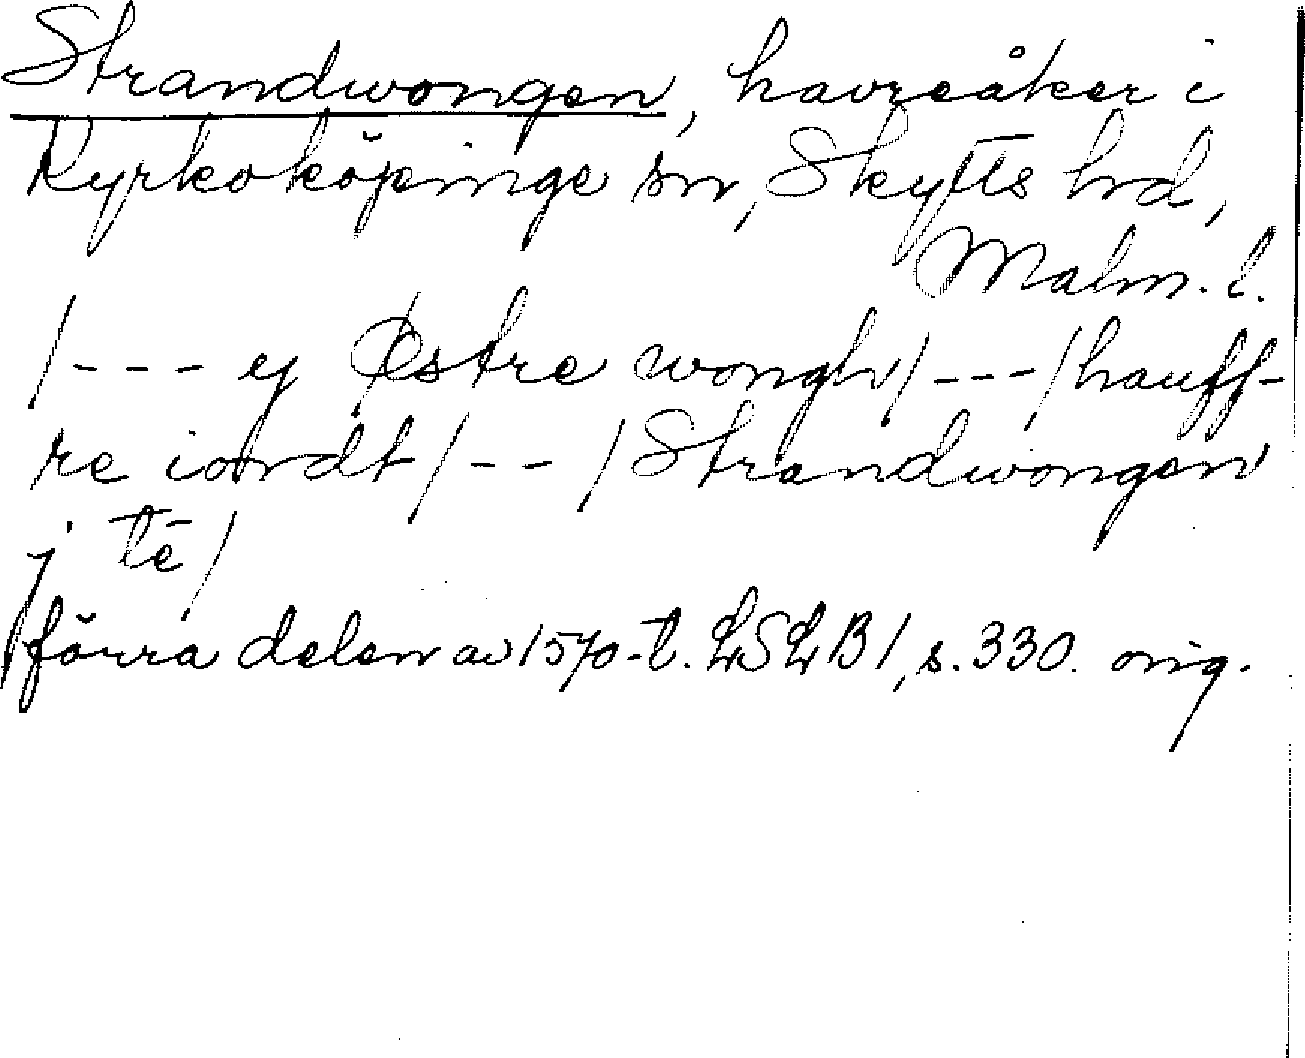 Strandwongen, havreåker i
Kyrkoköpinge sn, Skytts hd,
Malm. l.
/--- ej Østre wongh/---/hauff-
re iordt/--/Strandwongen
j tē/
förra delen av 1570-t. LSLB1, s. 330. orig.